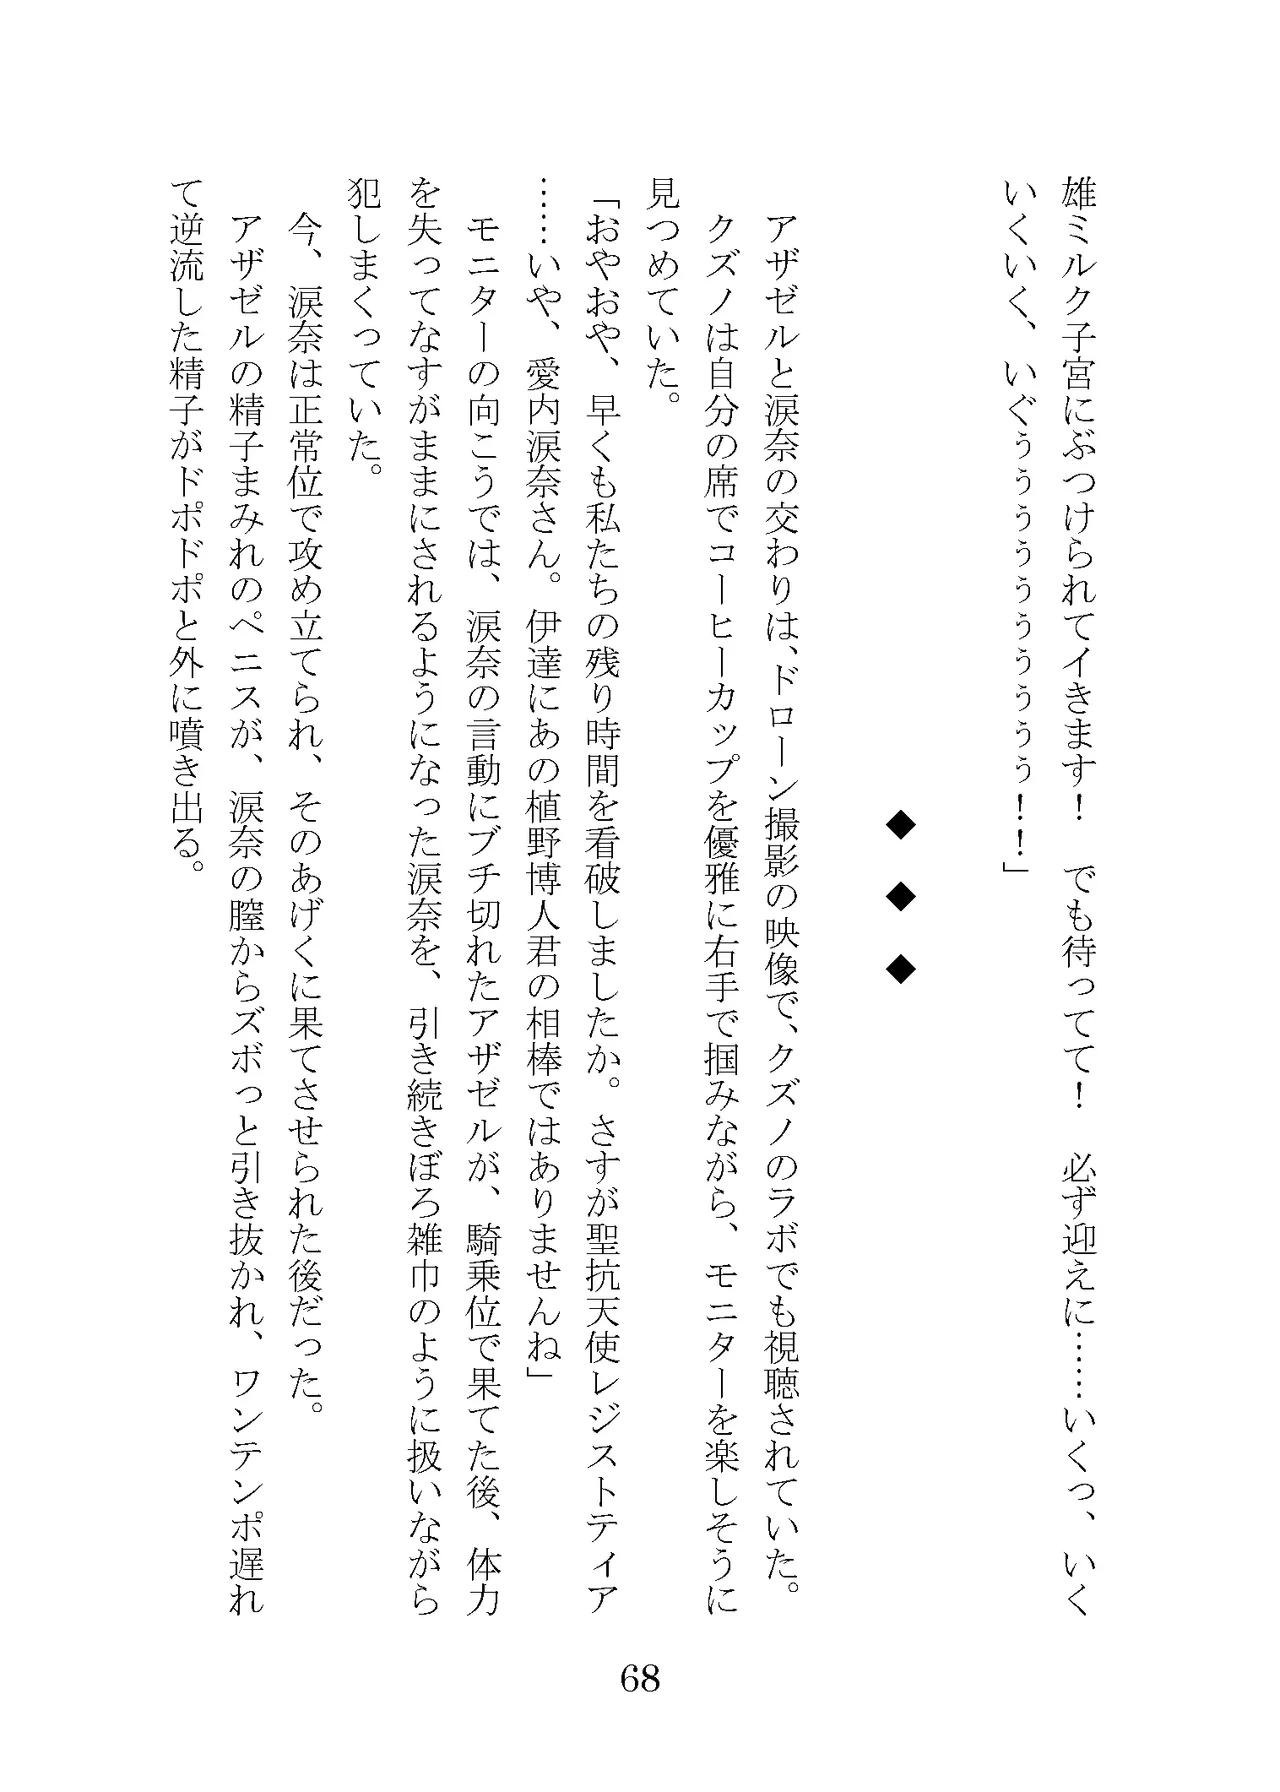 雄ミルク子宮にぶつけられてイきます！　でも待ってて！　必ず迎えに……いくっ、いく
いくいく、いぐぅぅぅぅぅぅぅぅぅ！！」
◆　◆　◆
アザゼルと涙奈の交わりは、ドローン撮影の映像で、クズノのラボでも視聴されていた。
クズノは自分の席でコーヒーカップを優雅に右手で掴みながら、モニターを楽しそうに
見つめていた。
「おやおや、早くも私たちの残り時間を看破しましたか。さすが聖抗天使レジストティア
……いや、愛内涙奈さん。伊達にあの植野博人君の相棒ではありませんね」
モニターの向こうでは、涙奈の言動にブチ切れたアザゼルが、騎乗位で果てた後、体力
を失ってなすがままにされるようになった涙奈を、引き続きぼろ雑巾のように扱いながら
犯しまくっていた。
今、涙奈は正常位で攻め立てられ、そのあげくに果てさせられた後だった。
アザゼルの精子まみれのペニスが、涙奈の膣からズボっと引き抜かれ、ワンテンポ遅れ
て逆流した精子がドポドポと外に噴き出る。
68